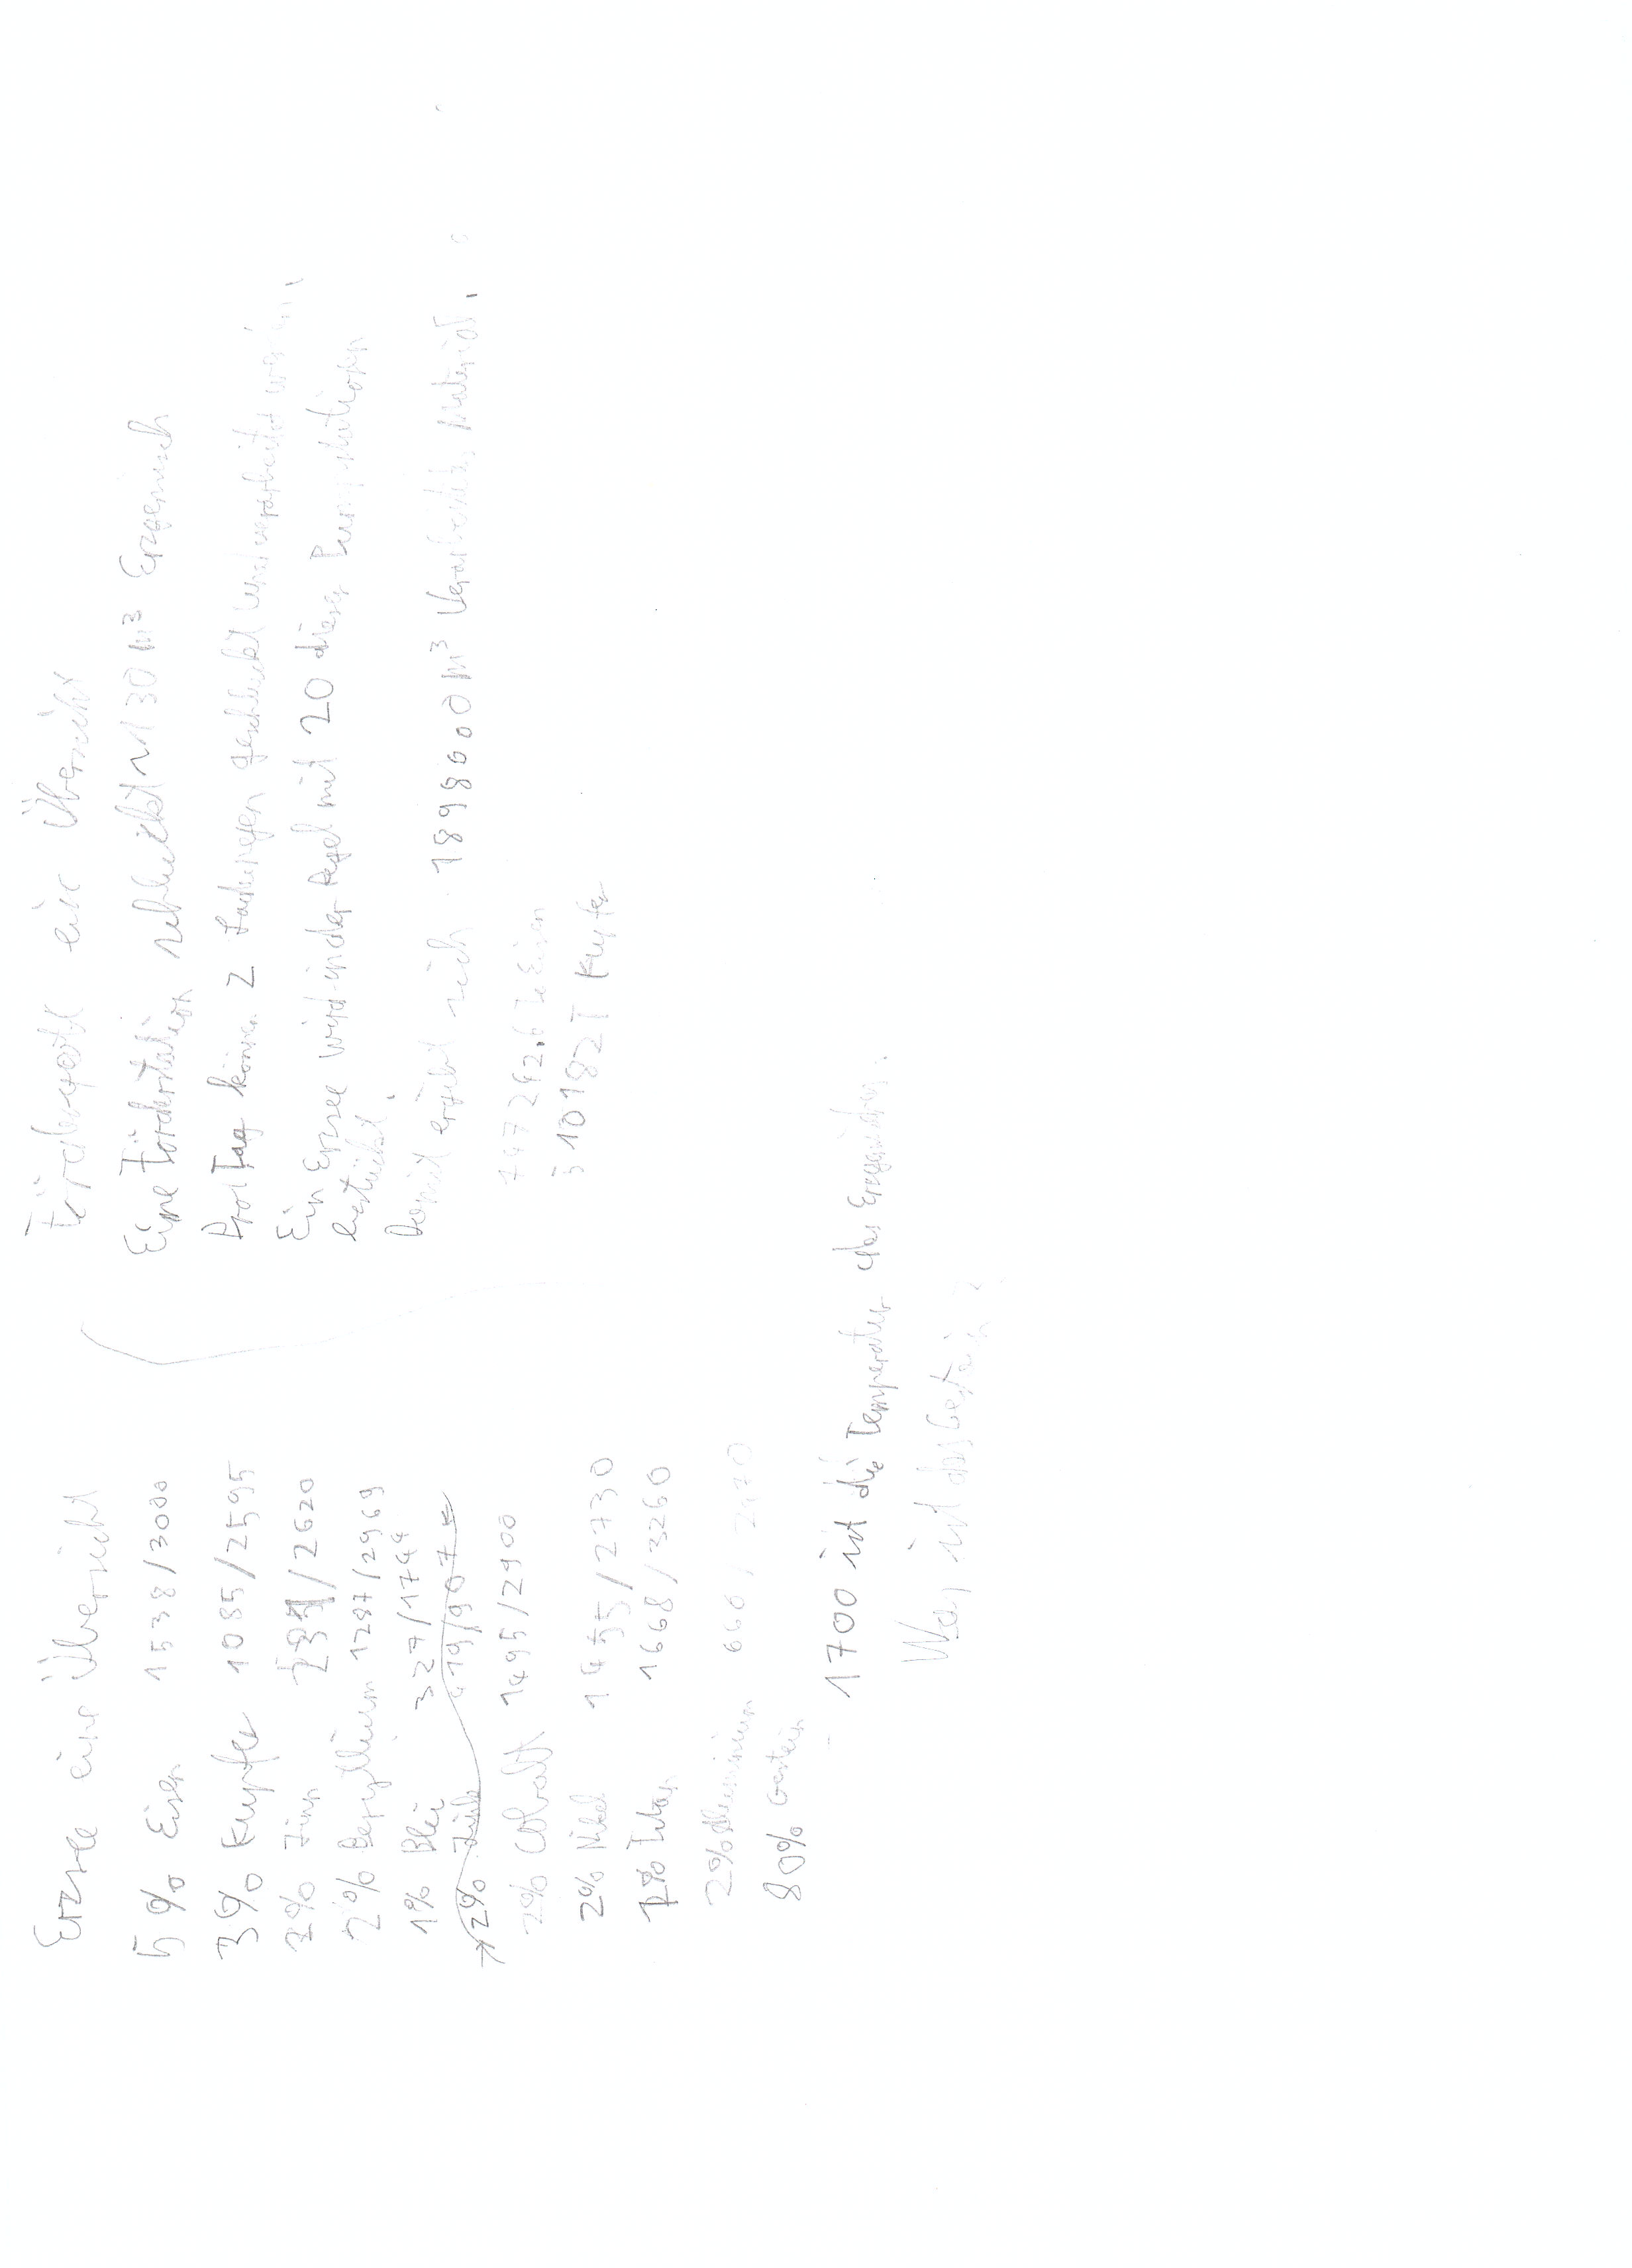 Erzsee eine Übersicht
5% Eisen 1538/3000
3% Kupfer 1085/2595
2% Zinn 231/2620
2% Beryllium 1287/2969
1% Blei 327/1744
2% Zink 419/907
2% Cobalt 1495/2900
2% Nikel 1455/2730
1% Titan 1668/3260
2% Aluminium 660/2470
80% Gestein
1700 ist die Temperatur des Erzgemisches.
Was ist das Gestein?
eine Übersicht
Eine Förderstation schluckt ~130 m³ Erzgemisch
Pro Tag können 2 Ladungen geschluckt und verarbeitet werden.
Ein Erzsee wird in der Regel mit 20 dieser Pumpstationen
bestückt.
Damit ergibt sich 1898000 m³ Verarbeitetes Material.
747242.6 To Eisen
510182 T Kupfer